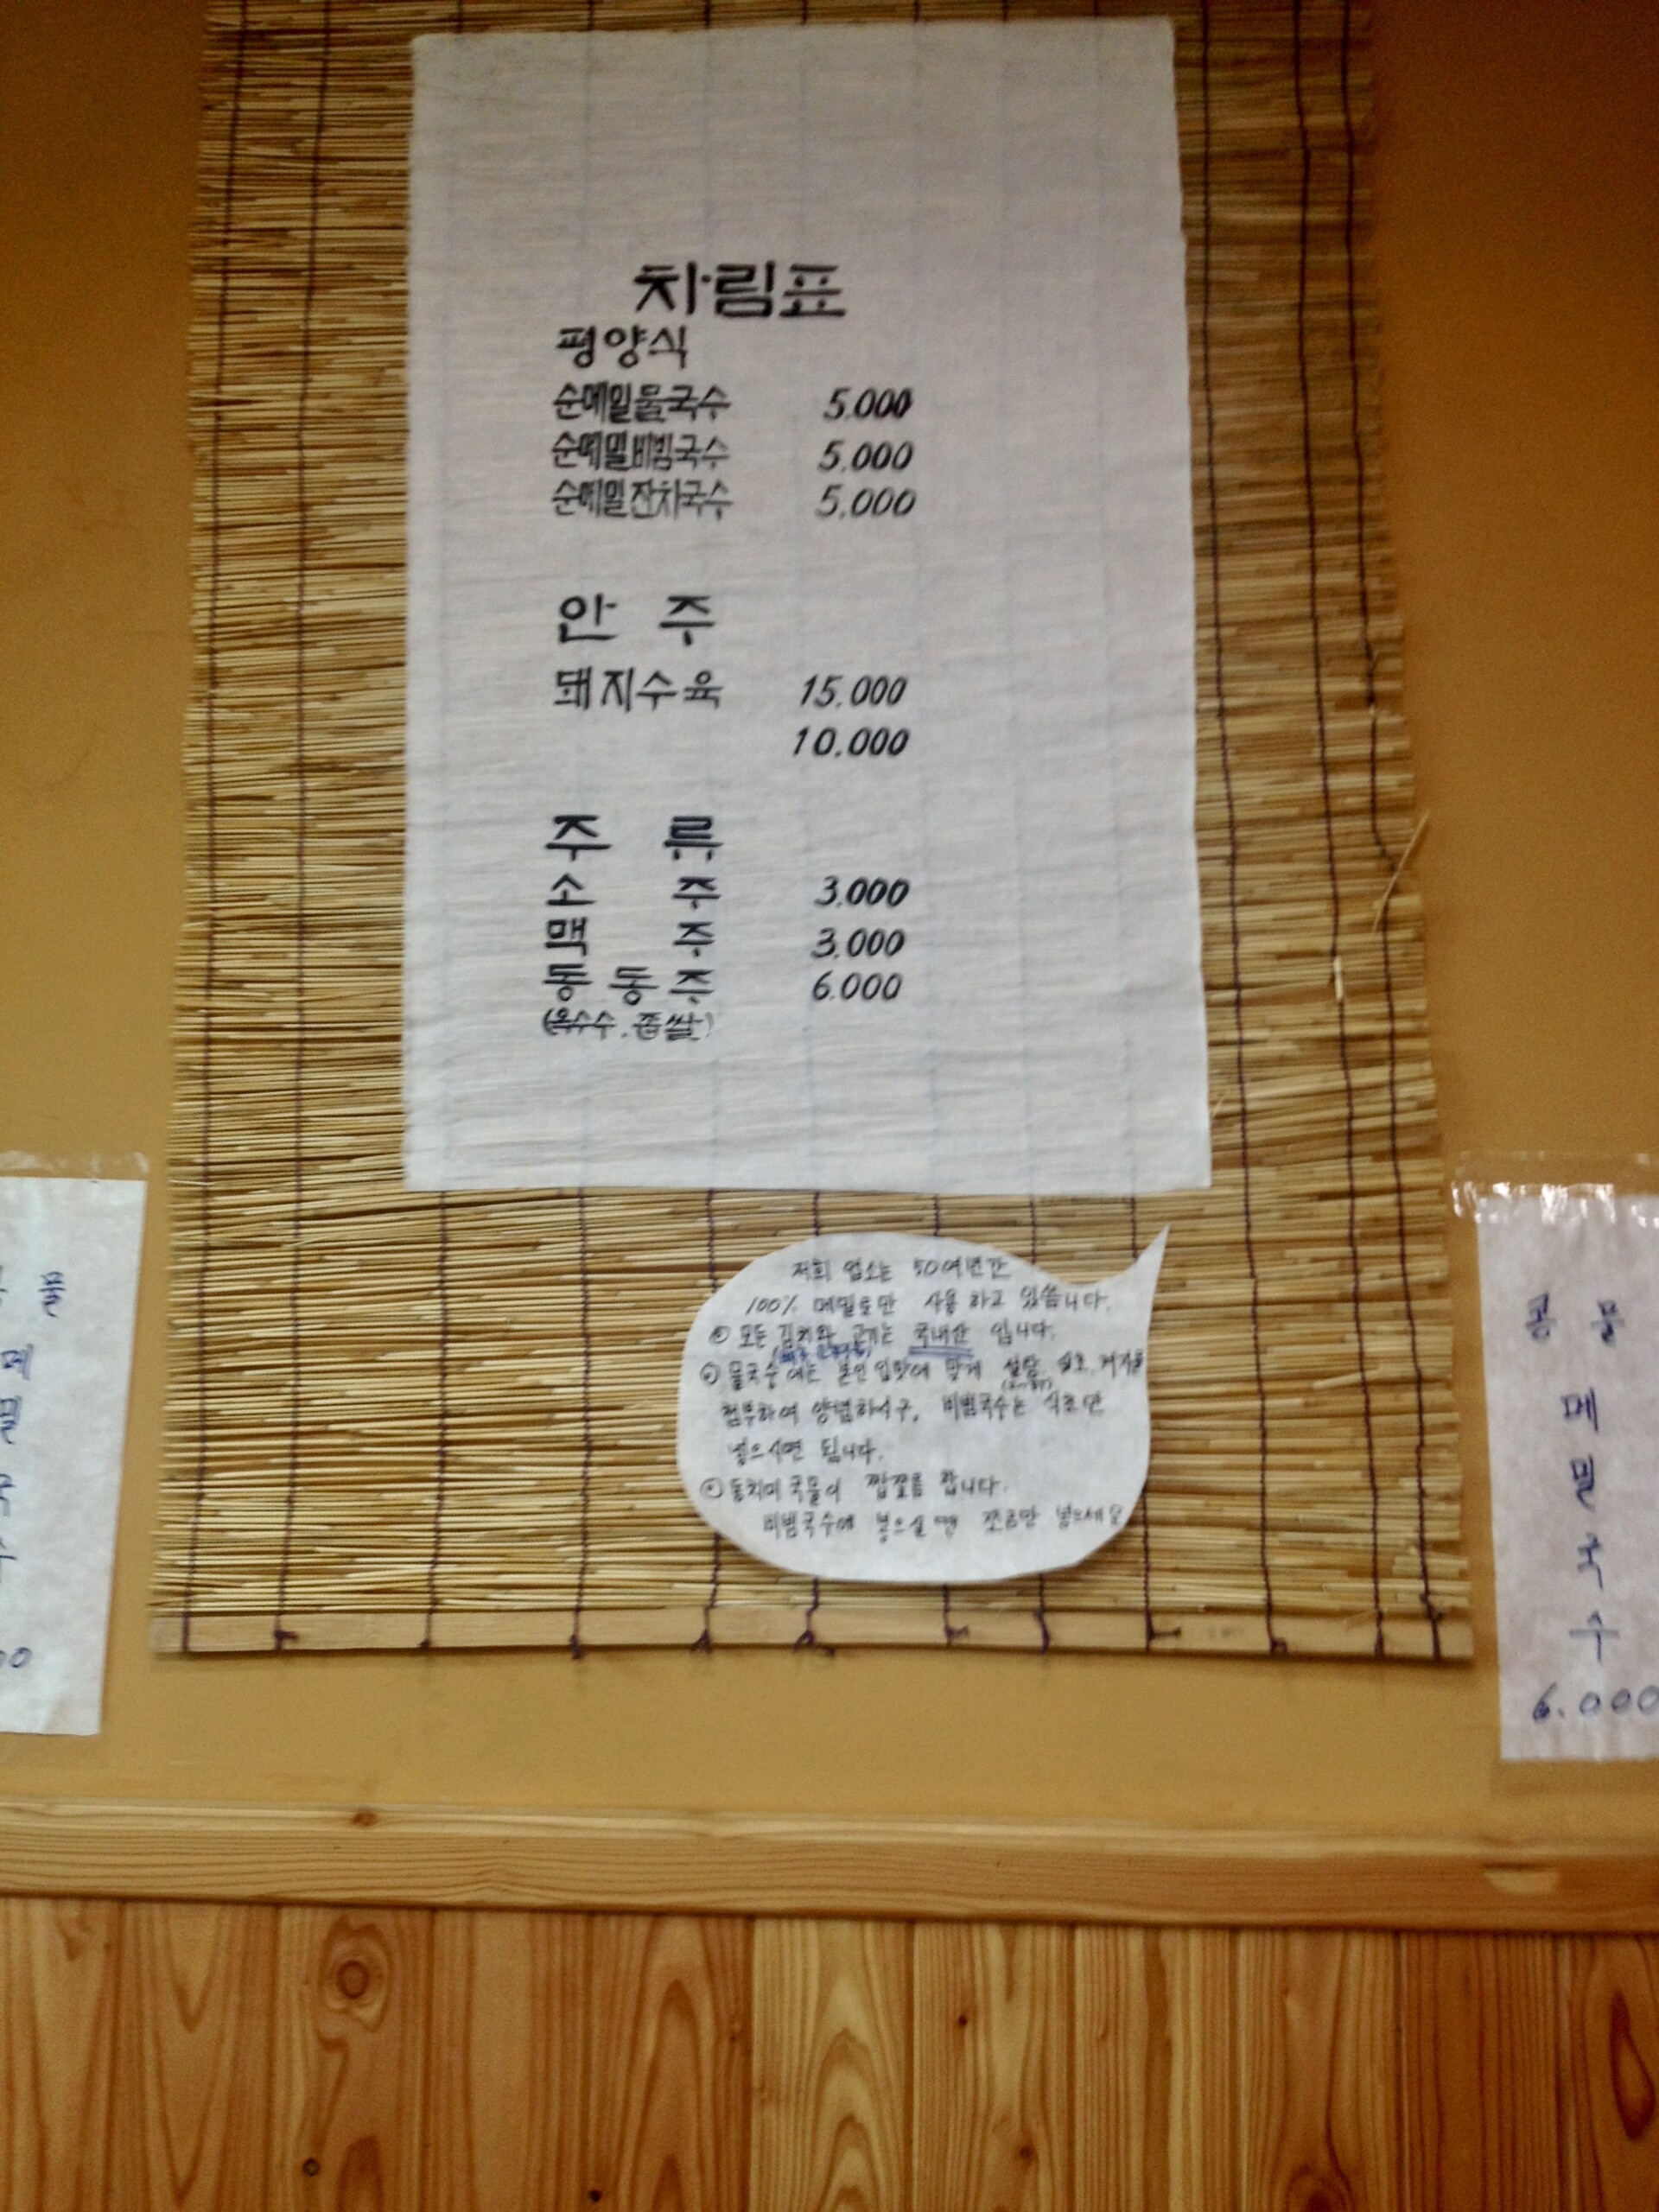 차림표
평양식
순메밀물국수 5.000
순메밀비빔국수 5.000
순메밀잔치국수 5.000
안 주
돼지수육 15.000
10.000
주 류
소 주 3.000
맥 주 3.000
동 동 주 6.000
(옥수수.좁쌀)
저희 업소는 50여년간
100% 메밀로만 사용하고 있습니다.
⊙ 모든 김치와 고기는 국내산 입니다.
⊙ 물국수에는 본인 입맛에 맞게 설탕. 식초. 겨자를
첨부하여 양념하시구, 비빔국수는 식초만
넣으시면 됩니다.
⊙ 동치미 국물이 짭짤름 합니다.
비빔국수에 넣으실땐 쪼금만 넣으세요
콩 물
메
밀
국
수
6.000
메
밀
국
수
00